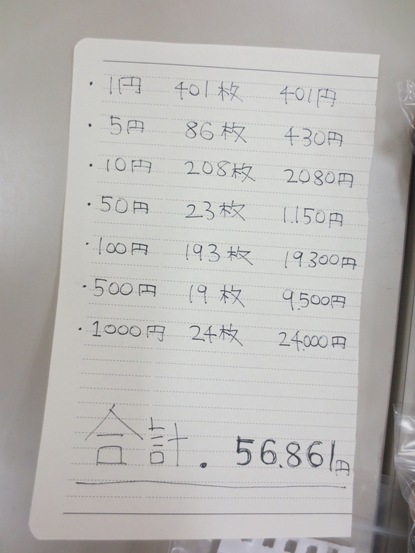 ・1円 401枚 401円
・5円 86枚 430円
・10円 208枚 2080円
・50円 23枚 1.150円
・100円 193枚 19.300円
・500円 19枚 9.500円
・1000円 24枚 24.000円
合計. 56.861円